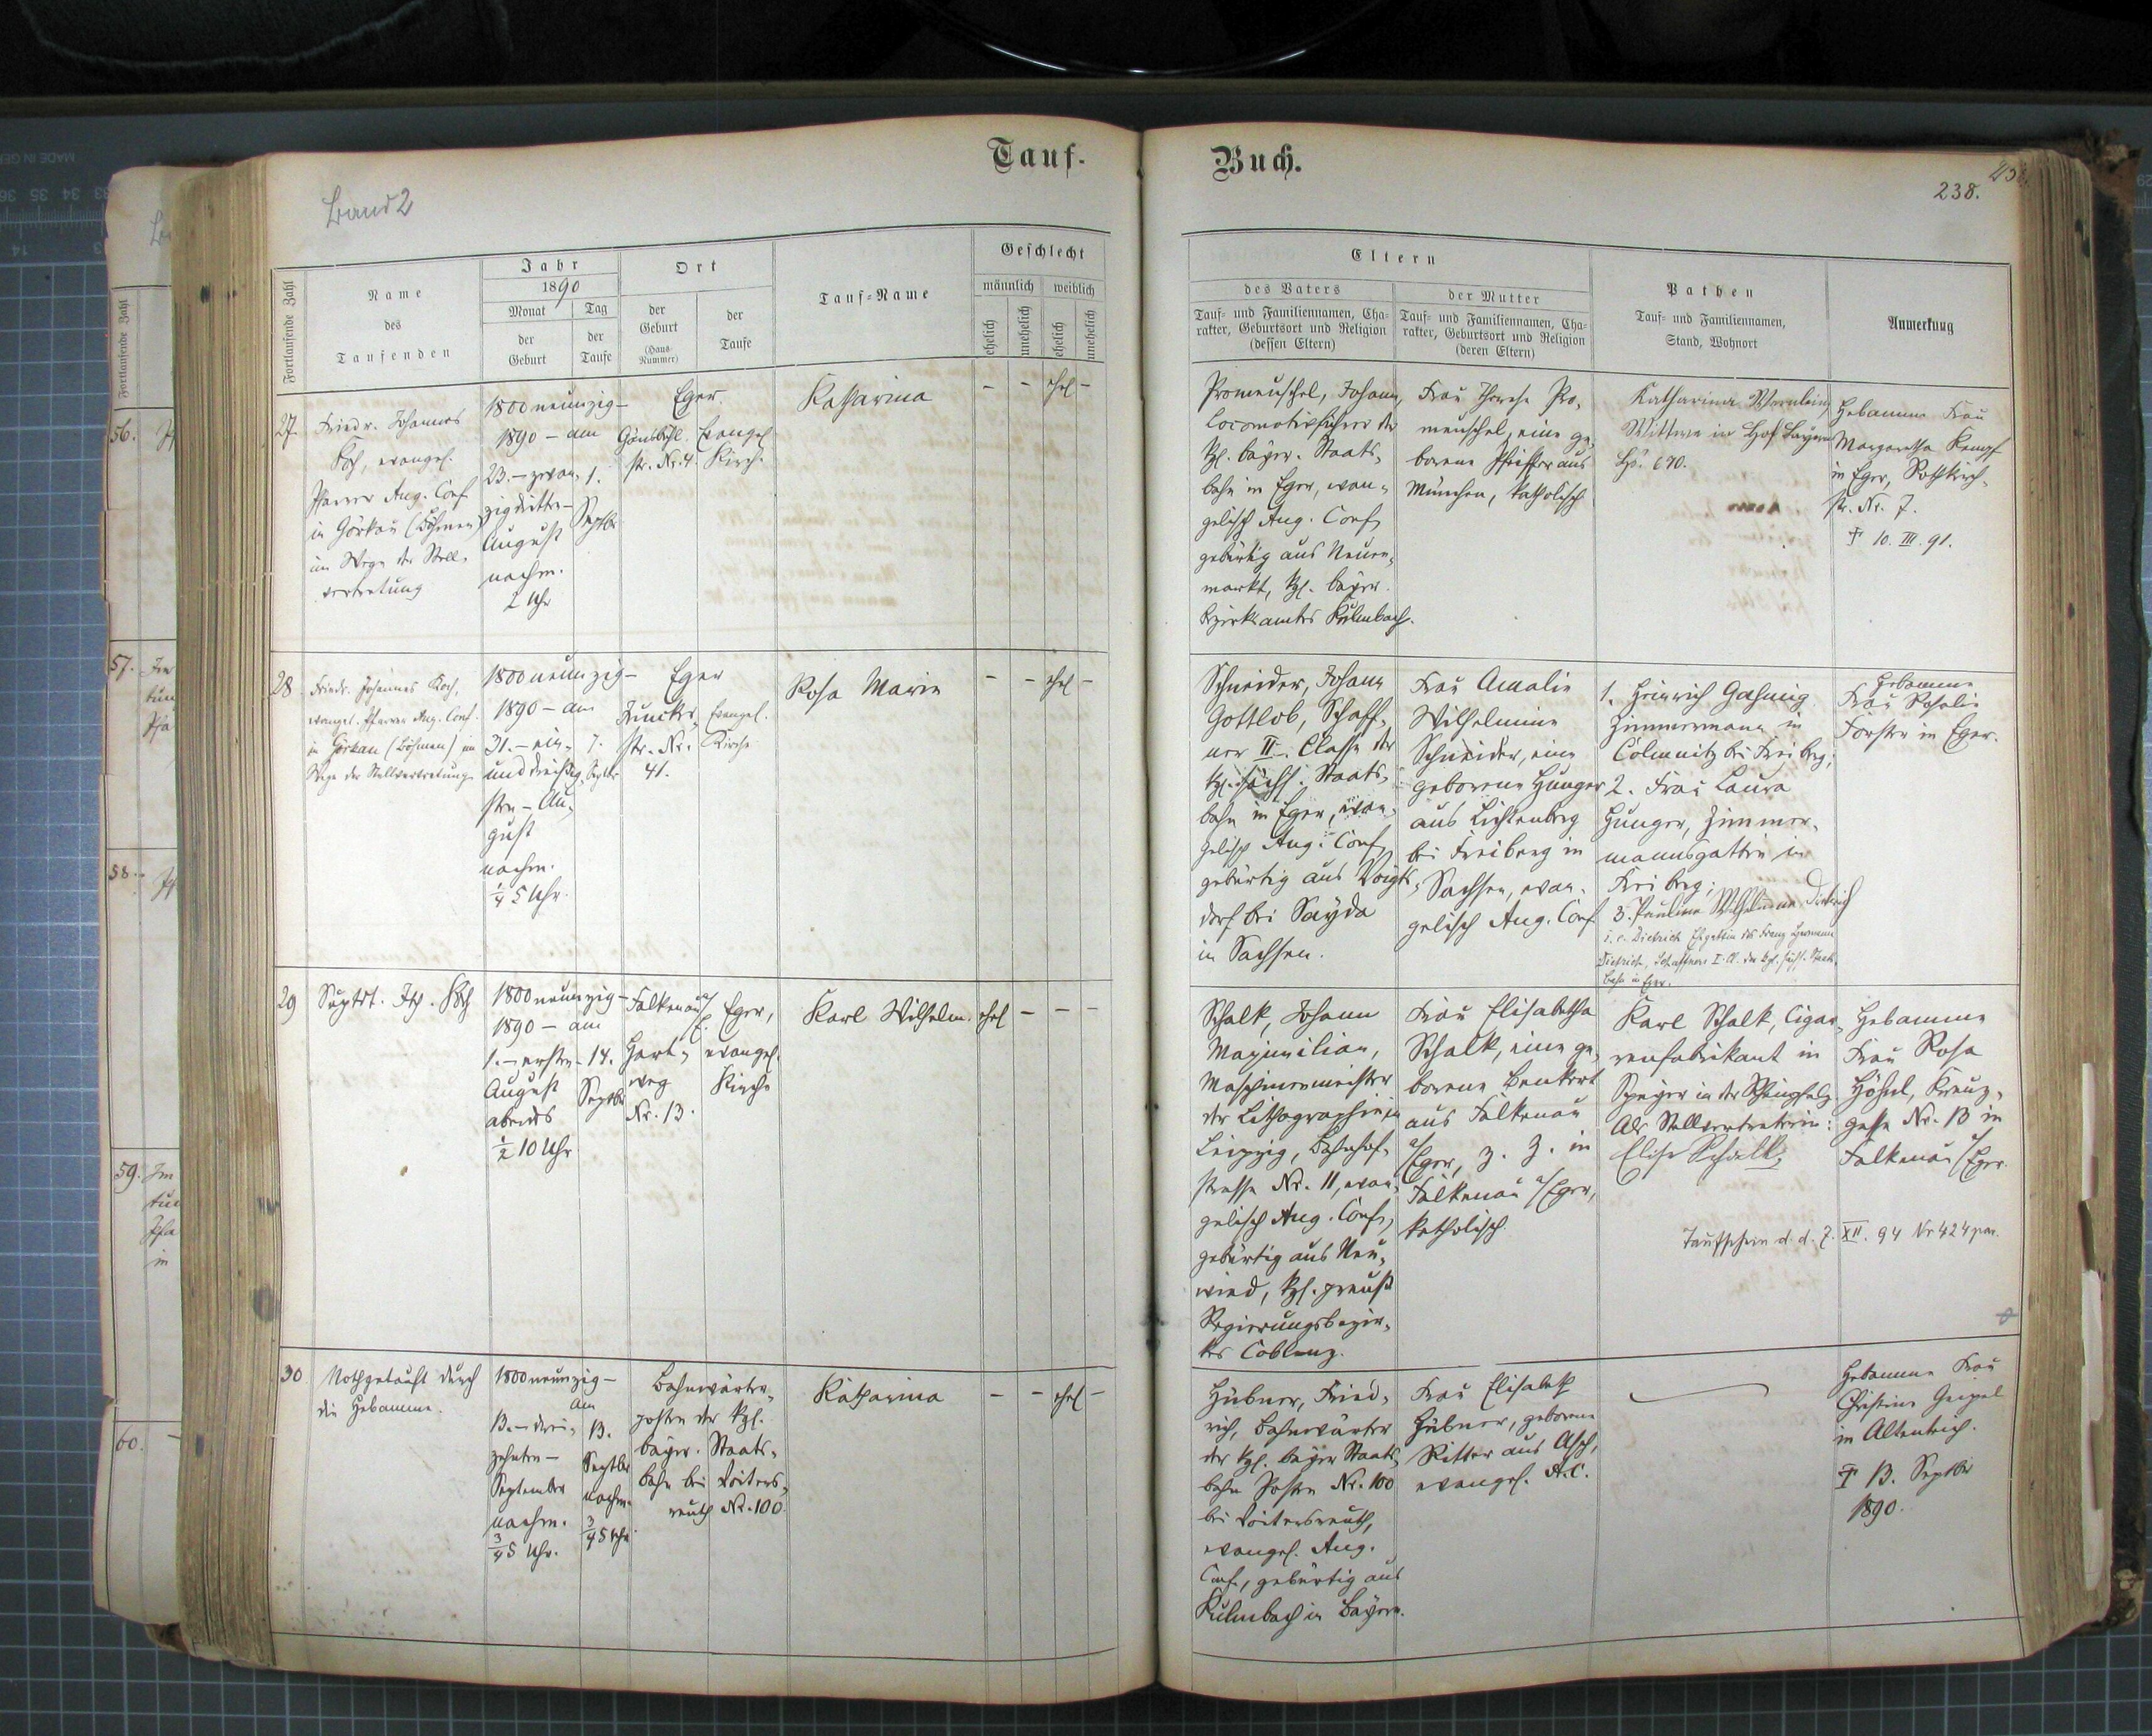 Tauf-
Buch.
Band 2
238.
Fortlaufende Zahl
Name
des
Taufenden
Jahr
1890
Monat
Tag
der
Geburt
der
Taufe
Ort
der
Geburt
(Haus-
Nummer)
der
Taufe
Tauf-Name
Geschlecht
männlich
weiblich
ehelich
unehelich
ehelich
unehelich
Eltern
des Vaters
Tauf- und Familiennamen, Cha-
rakter, Geburtsort und Religion
(dessen Eltern)
der Mutter
Tauf- und Familiennamen, Cha-
rakter, Geburtsort und Religion
(deren Eltern)
Pathen
Tauf- und Familiennamen,
Stand, Wohnort
Anmerkung
27
Friedr. Johannes
Koch, evangel.
Pfarrer Aug. Conf.
in Görkau (Böhmen)
im Wege der Stell-
vertretung
1800 neunzig-
1890 - am
23. - zwan-
zigdritten-
August
nachm.
2 Uhr
1.
Septbr
Eger.
str. Nr. 4.
Evangel.
Kirche
Katharina
- - ehel -
Promeuschel, Johann,
Locomotivführer der
kgl. bayer. Staats-
bahn in Eger, evan-
gelisch Aug. Conf.,
gebürtig aus Neuen-
markt, kgl. bayer.
Bezirksamtes Kulmbach.
Frau Therese Pro-
meuschel, eine ge-
borene Pfeiffer aus
München, katholisch
Katharina Wernlein,
Wittwe in Hof Bayern
Hs. 670.
Hebamme Frau
Margaretha Kempf
in Eger,
str. Nr. 7.
† 10. III. 91.
28
Friedr. Johannes Koch,
evangel. Pfarrer Aug. Conf.
in Görkau (Böhmen) im
Wege der Stellvertretung
1800 neunzig-
1890 - am
31. - ein-
und dreißig-
sten - Au-
gust
nachm.
1/4 5 Uhr.
7.
Septbr
Eger
Juncker-
str. Nr.
41.
Evangel.
Kirche
Rosa Marie
- - ehel -
Schneider, Johann
Gottlob, Schaff-
ner II. Classe der
kgl. sächs. Staats-
bahn in Eger, evan-
gelisch Aug. Conf.,
gebürtig aus Voigts-
dorf bei Sayda
in Sachsen.
Frau Amalie
Wilhelmine
Schneider, eine
geborene Hunger
aus Lichtenberg
bei Freiberg in
Sachsen, evan-
gelisch Aug. Conf.
1. Heinrich
Zimmermann in
Colmnitz bei Freiberg;
2. Frau Laura
Hunger, Zimmer-
mannsgattin in
Freiberg;
3. Pauline Wilhelmine Dietrich
i. e. Dietrich Ehgattin des Franz Hermann
Dietrich, Schaffners I. Cl. der kgl. sächs. Staats-
bahn in Eger.
Hebamme
Frau Rosalie
Forster in Eger.
29
Suptdt. Koch
1800 neunzig-
1890 - am
1. - ersten-
August
abends
1/2 10 Uhr
14.
Septbr
Falkenau a/
E.
Hart-
weg
Nr. 13.
Eger,
evangel.
Kirche
Karl Wilhelm.
ehel - - -
Schalk, Johann
Maximilian,
Maschinenmeister
der Lithographie in
Leipzig, Bahnhof-
strasse Nr. 11, evan-
gelisch Aug. Conf.,
gebürtig aus Neu-
wied, kgl. preuß
Regierungsbezir-
kes Coblenz.
Frau Elisabetha
Schalk, eine ge-
borene Benkert
aus Falkenau
a/Eger, z. Z. in
Falkenau a/Eger,
katholisch.
Karl Schalk, Cigar-
renfabrikant in
Speyer in der Rheinpfalz
Als Stellvertreterin:
Elise Schalk
Hebamme
Frau Rosa
Höhnl, Kreuz-
gasse Nr. 13 in
Falkenau a/Eger.
Taufschein d. d. 7. XII. 94 Nr 424
30
Nothgetauft durch
die Hebamme.
1800 neunzig-
am
13. - drei-
zehnten -
September
nachm.
3/4 5 Uhr.
13.
Septbr
nachm.
3/4 5 Uhr
Bahnwärter-
posten der kgl.
bayer. Staats-
bahn bei Voiters-
reuth Nr. 100.
Katharina
- - ehel -
Hübner, Fried-
rich, Bahnwärter
der kgl. bayer Staats-
bahn Posten Nr. 100
bei Voitersreuth,
evangel. Aug.
Conf., gebürtig aus
Kulmbach in Bayern.
Frau Elisabeth
Hübner, geborene
Ritter aus Asch,
evangel. A. C.
Hebamme Frau
Christine Geipel
in Altenteich.
† 13. Septbr
1890.
56.
57.
58.
59.
60.